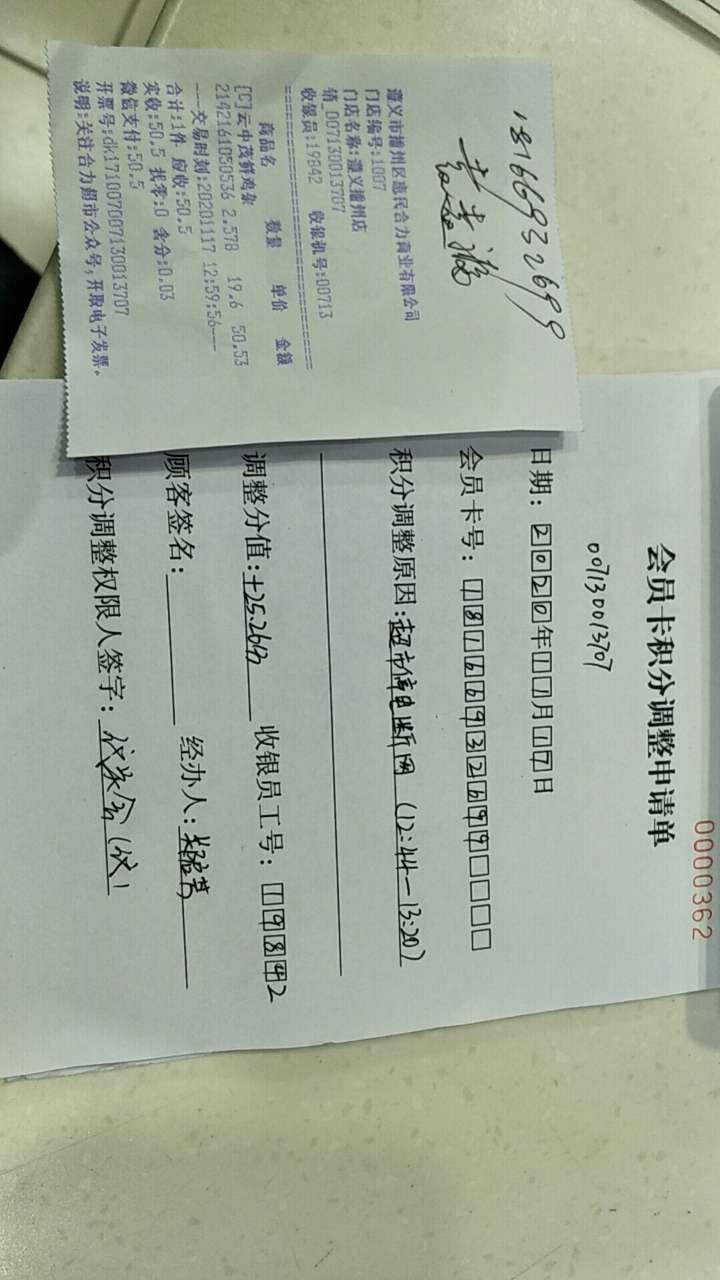 18166932699
遵义市播州区惠民合力商业有限公司
门店编号:1007
门店名称:遵义播州店
销_00713001​3707
收银员:19842 收银机号:00713
商品名 数量 单价 金额
[C]云中茂鲜鸡杂
2142161050536 2.578 19.6 50.53
---交易时刻:20201117 12:59:56---
合计:1件 应收:50.5
实收:50.5 找零:0 含分:0.03
微信支付:50.5
开票号:dk1710070071300​13707
说明:关注合力超市公众号,开取电子发票。
0000362
会员卡积分调整申请单
007130013707
日期:2020年11月17日
会员卡号:18166932699
积分调整原因:超市停电断网 (12:44-13:20)
调整分值:+25.26分 收银员工号:19842
顾客签名: 经办人:
积分调整权限人签字: